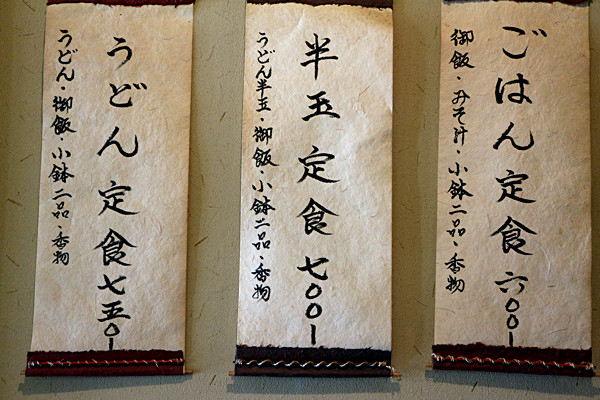 ごはん定食 六〇〇ー
御飯・みそ汁・小鉢二品・香物
半玉定食 七〇〇ー
うどん半玉・御飯・小鉢二品・香物
うどん定食 七五〇ー
うどん・御飯・小鉢二品・香物